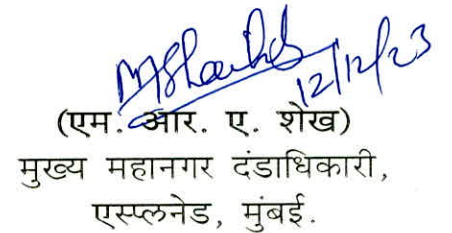 12/12/23
(एम. आर. ए. शेख)
मुख्य महानगर दंडाधिकारी,
एस्प्लनेड, मुंबई.